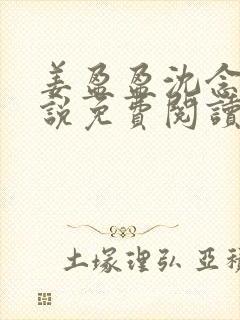 姜盈盈沈念
說免費閱讀
土塚理弘 亞積